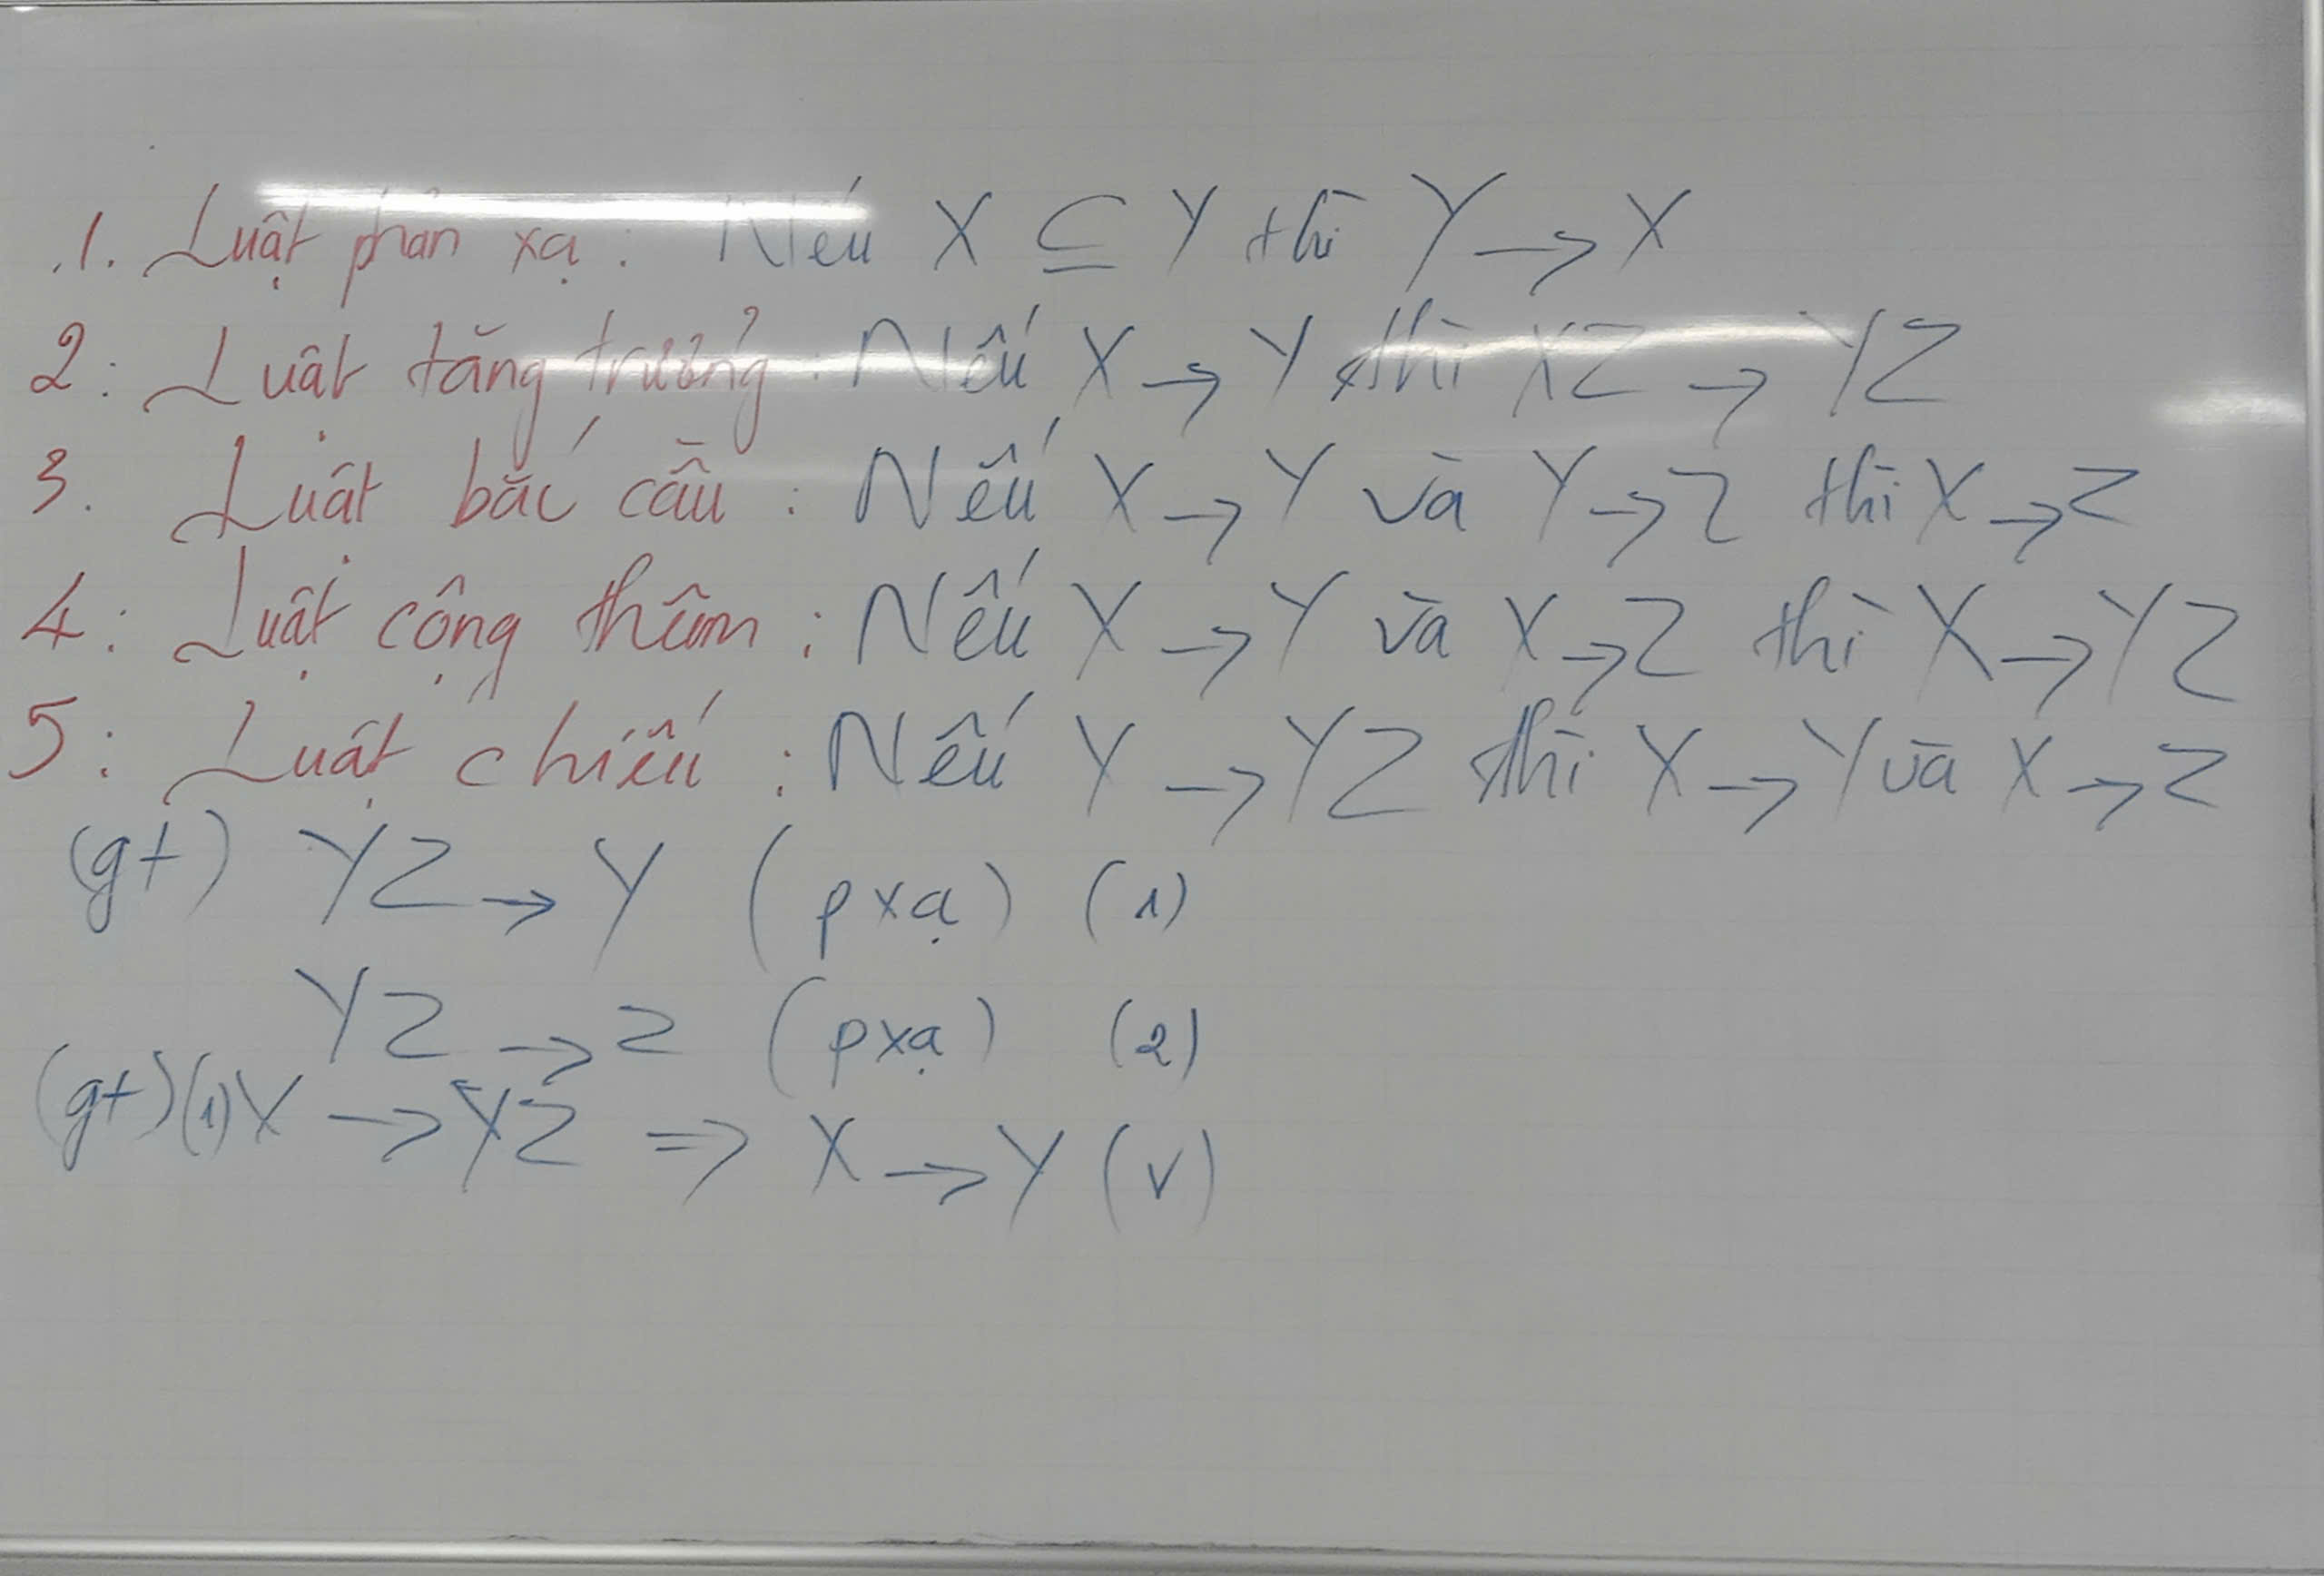 1. Luật phản xạ : Nếu X ⊆ Y thì Y → X
2: Luật tăng trưởng : Nếu X → Y thì XZ → YZ
3. Luật bắc cầu : Nếu X → Y và Y → Z thì X → Z
4: Luật cộng thêm : Nếu X → Y và X → Z thì X → YZ
5: Luật chiếu : Nếu Y → YZ thì X → Y và X → Z
(gt) YZ → Y (pxạ) (1)
YZ → Z (pxạ) (2)
(gt)(1) X → YZ ⇒ X → Y (v)